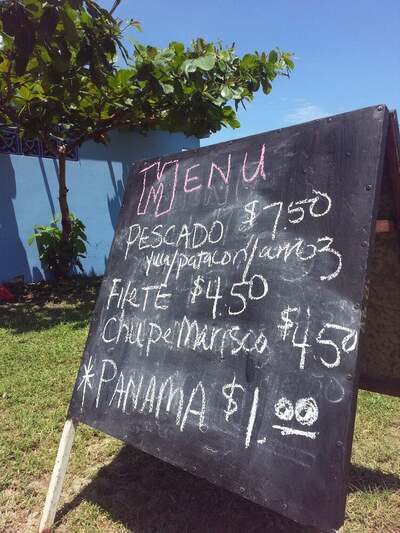 MENU
PESCADO $7.50
yuca/patacon/arroz
FileTE $4.50
ChupeMarisco $4.50
*PANAMA $1.00